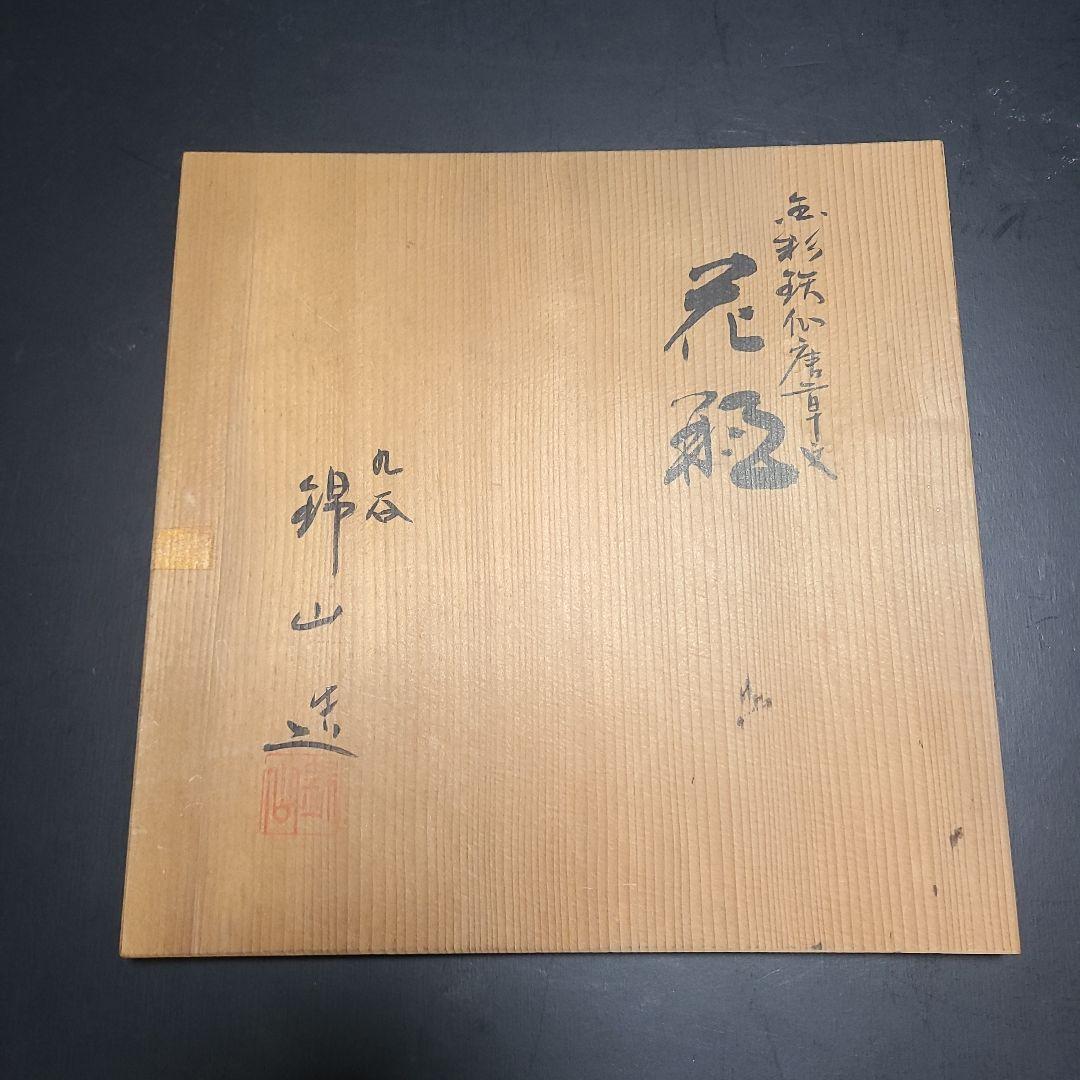 金彩鉄仙唐草文
花瓶
九谷
錦山造